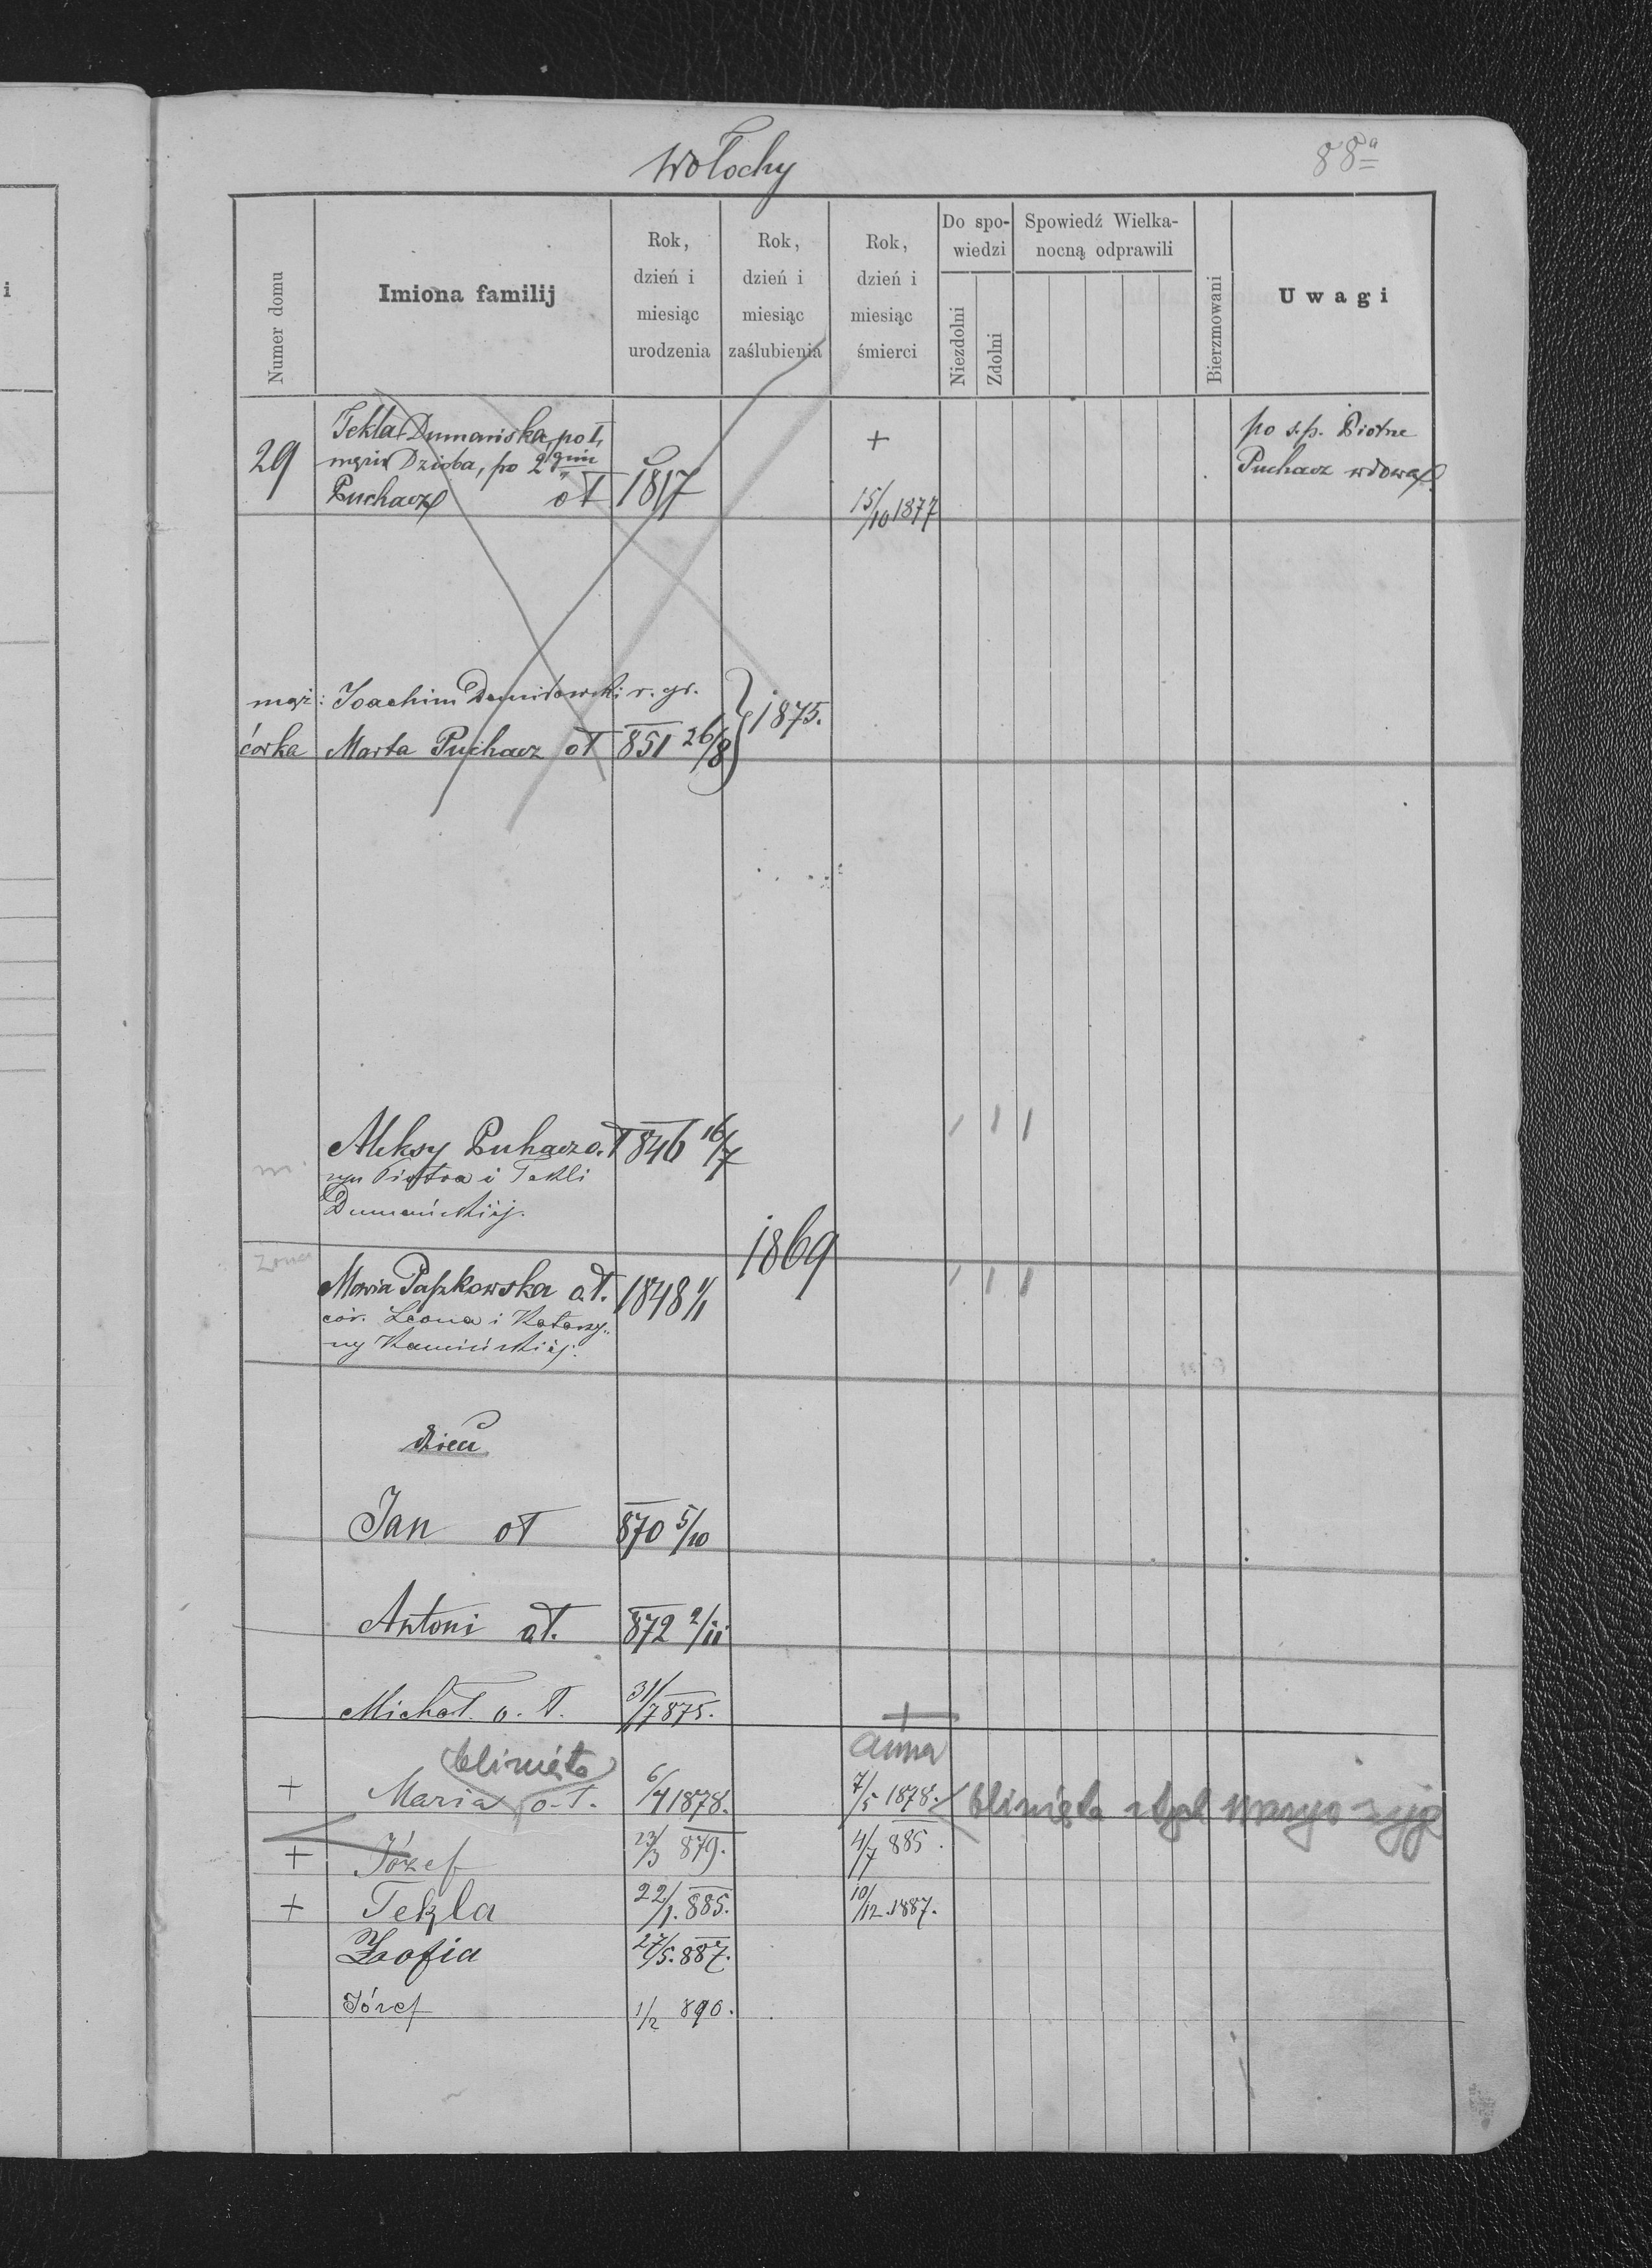 Wołochy
88a
Numer domu
Imiona familij
Rok, dzień i miesiąc urodzenia
Rok, dzień i miesiąc zaślubienia
Rok, dzień i miesiąc śmierci
Do spo-wiedzi
Niezdolni
Zdolni
Spowiedź Wielka-nocną odprawili
Bierzmowani
Uwagi
i
29
Tekla Dumańska, po 1,
mężu Dzioba, po 2gim
Puchacz oł 1817
+
15/10 1877
po s.p. Piotrze
Puchacz wdowa
mąż: Joachim Demidowski r. gr.
córka Marta Puchacz oł 851 26/8
1875.
m.
Aleksy Puhacz o.ł 846 16/7
syn Piotra i Tekli
Dumańskiéj.
1869
żona
Maria Paszkowska o.ł. 1848 1/1
cór. Leona i Katarzy-
ny Kamińskiéj.
dzieci
Jan oł 870 5/10
Antoni oł. 872 2/11
Michał o. ł. 31/7 875. +
bliznięta
Anna
+ Maria o.ł. 6/4 1878. 7/5 1878. bliznięta Marya żyje
+ Józef 23/3 879. 4/7 885.
+ Tekla 22/1. 885. 10/12. 1887.
Zofia 27/5. 887.
Józef 1/2 890.